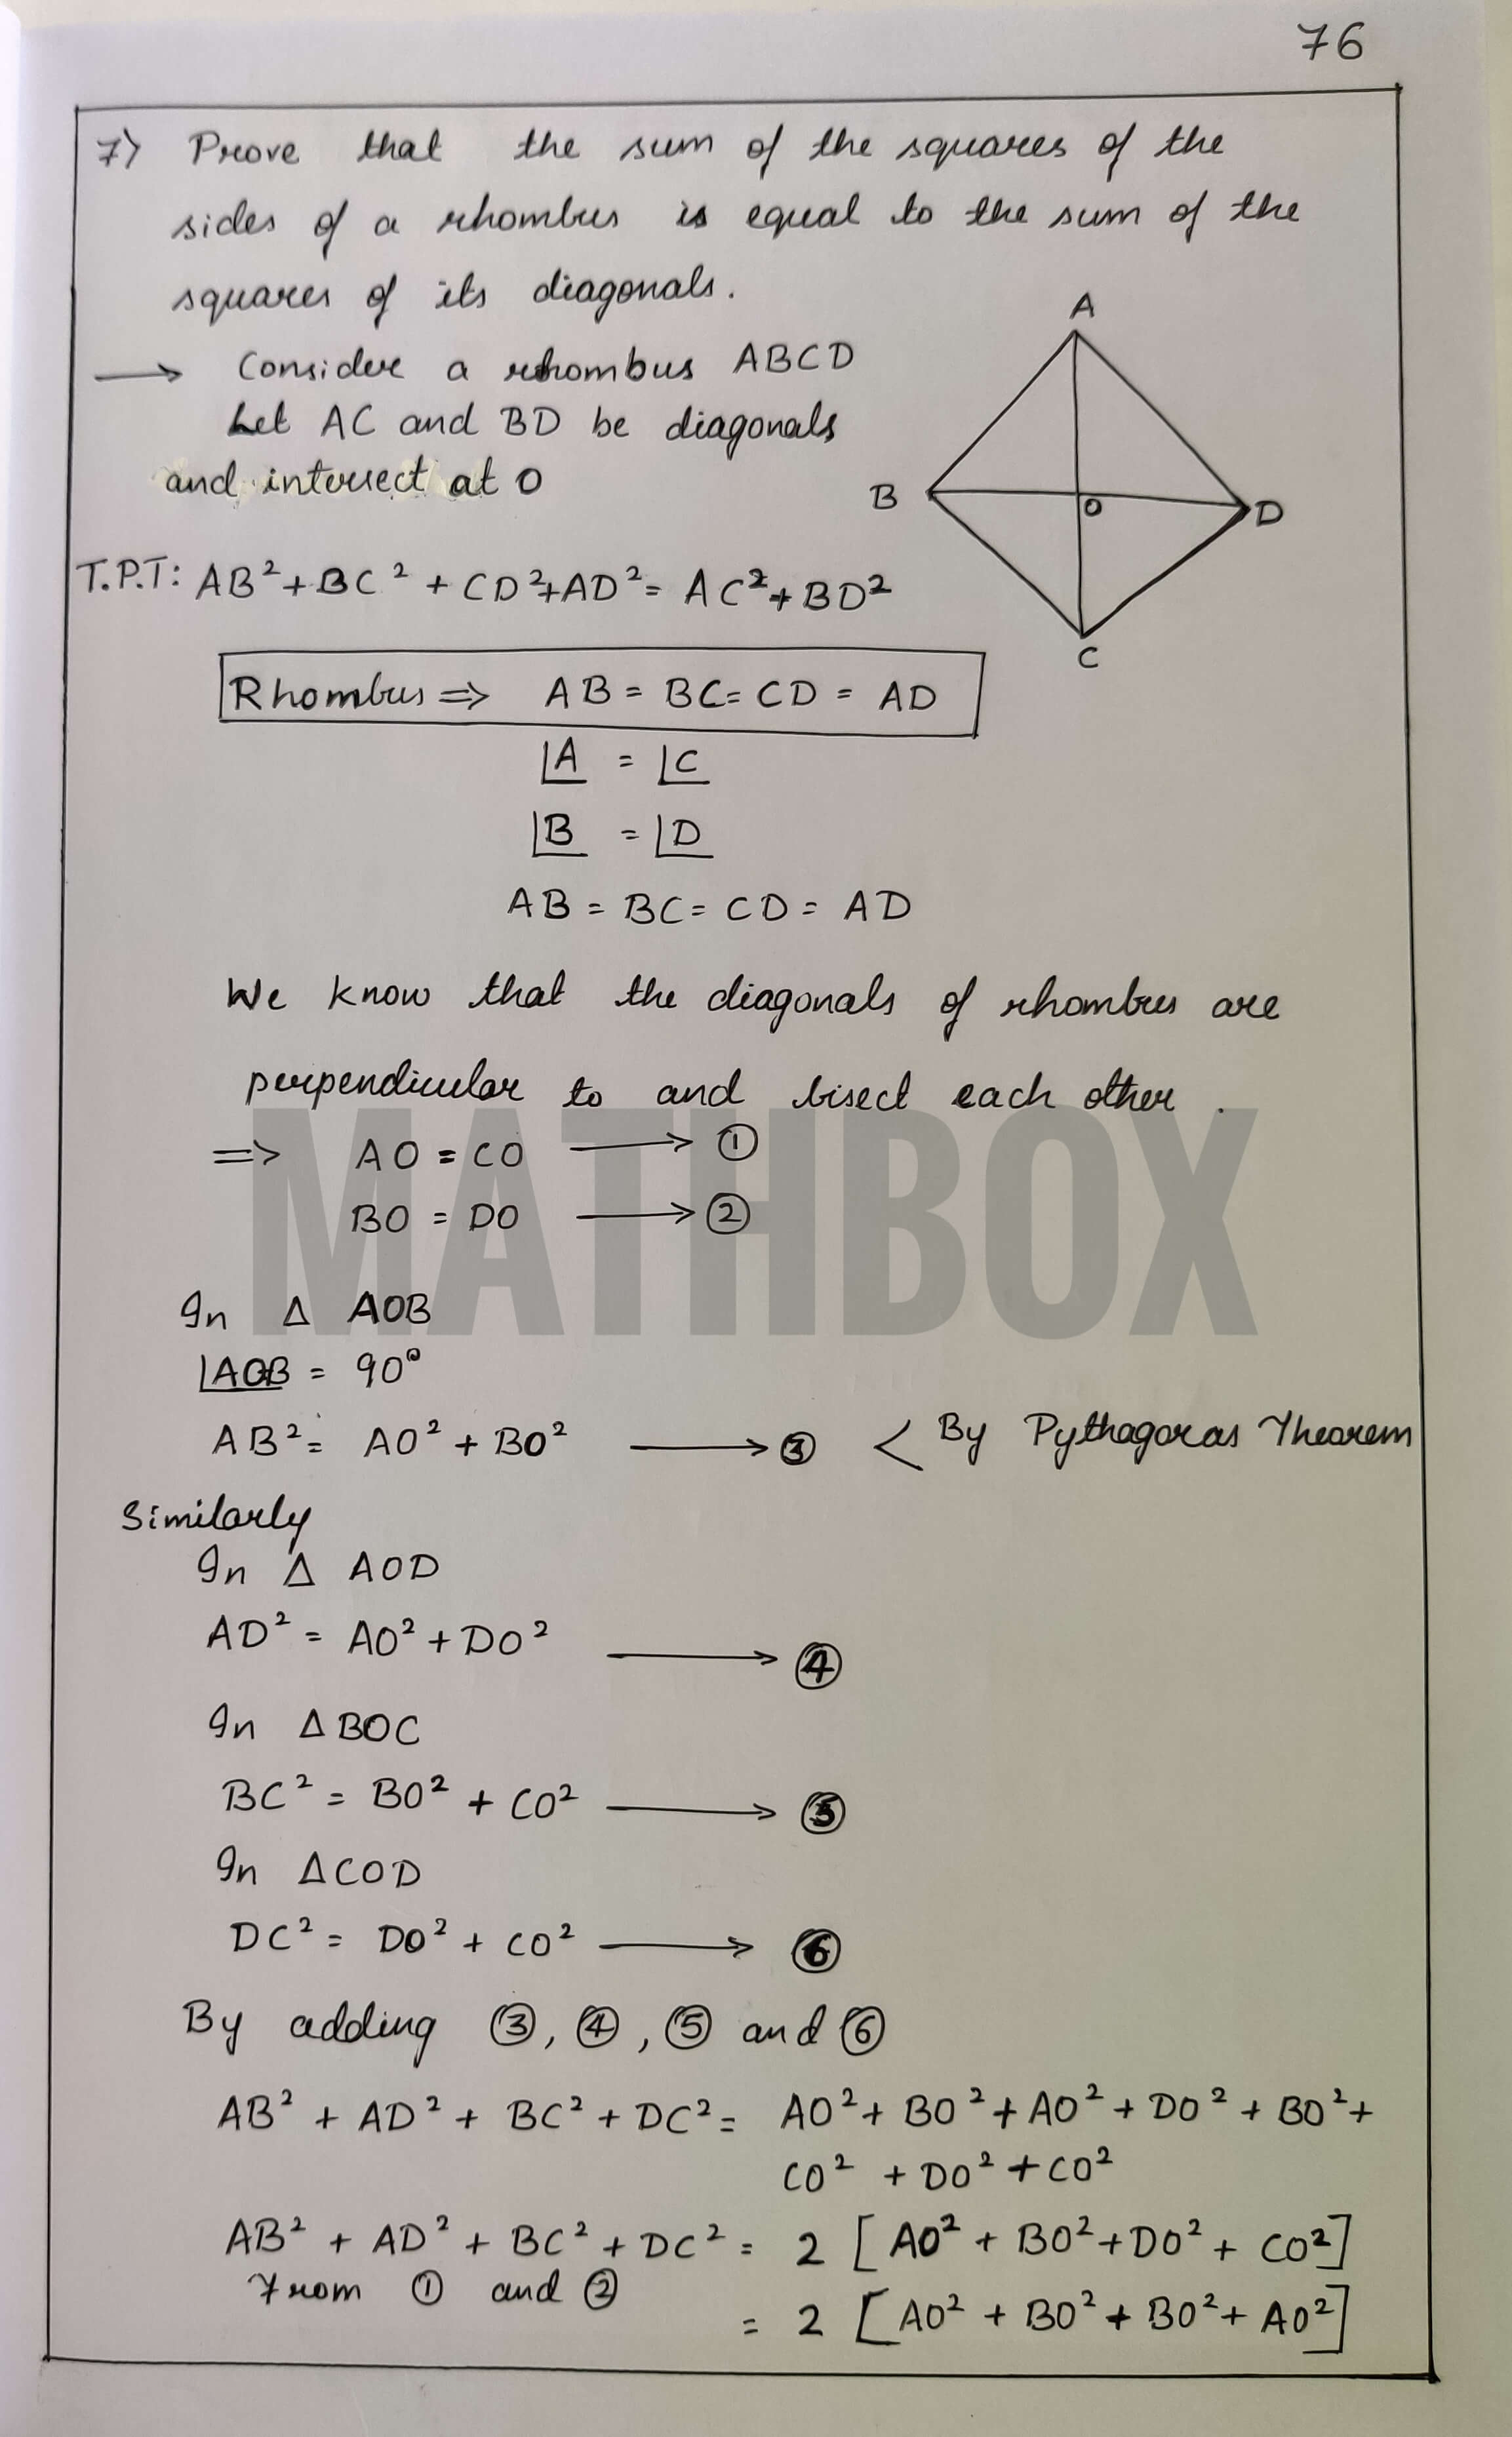 76
7) Prove that the sum of the squares of the
sides of a rhombus is equal to the sum of the
squares of its diagonals.
→ Consider a rhombus ABCD
Let AC and BD be diagonals
and intersect at O
A
B
O
D
C
T.P.T: AB² + BC² + CD² + AD² = AC² + BD²
Rhombus ⇒ AB = BC = CD = AD
∠A = ∠C
∠B = ∠D
AB = BC = CD = AD
We know that the diagonals of rhombus are
perpendicular to and bisect each other.
⇒ AO = CO → ①
BO = DO → ②
MATHBOX
In Δ AOB
∠AOB = 90°
AB² = AO² + BO² → ③ < By Pythagoras Theorem
Similarly
In Δ AOD
AD² = AO² + DO² → ④
In Δ BOC
BC² = BO² + CO² → ⑤
In Δ COD
DC² = DO² + CO² → ⑥
By adding ③, ④, ⑤ and ⑥
AB² + AD² + BC² + DC² = AO² + BO² + AO² + DO² + BO² +
CO² + DO² + CO²
AB² + AD² + BC² + DC² = 2 [AO² + BO² + DO² + CO²]
From ① and ②
= 2 [AO² + BO² + BO² + AO²]